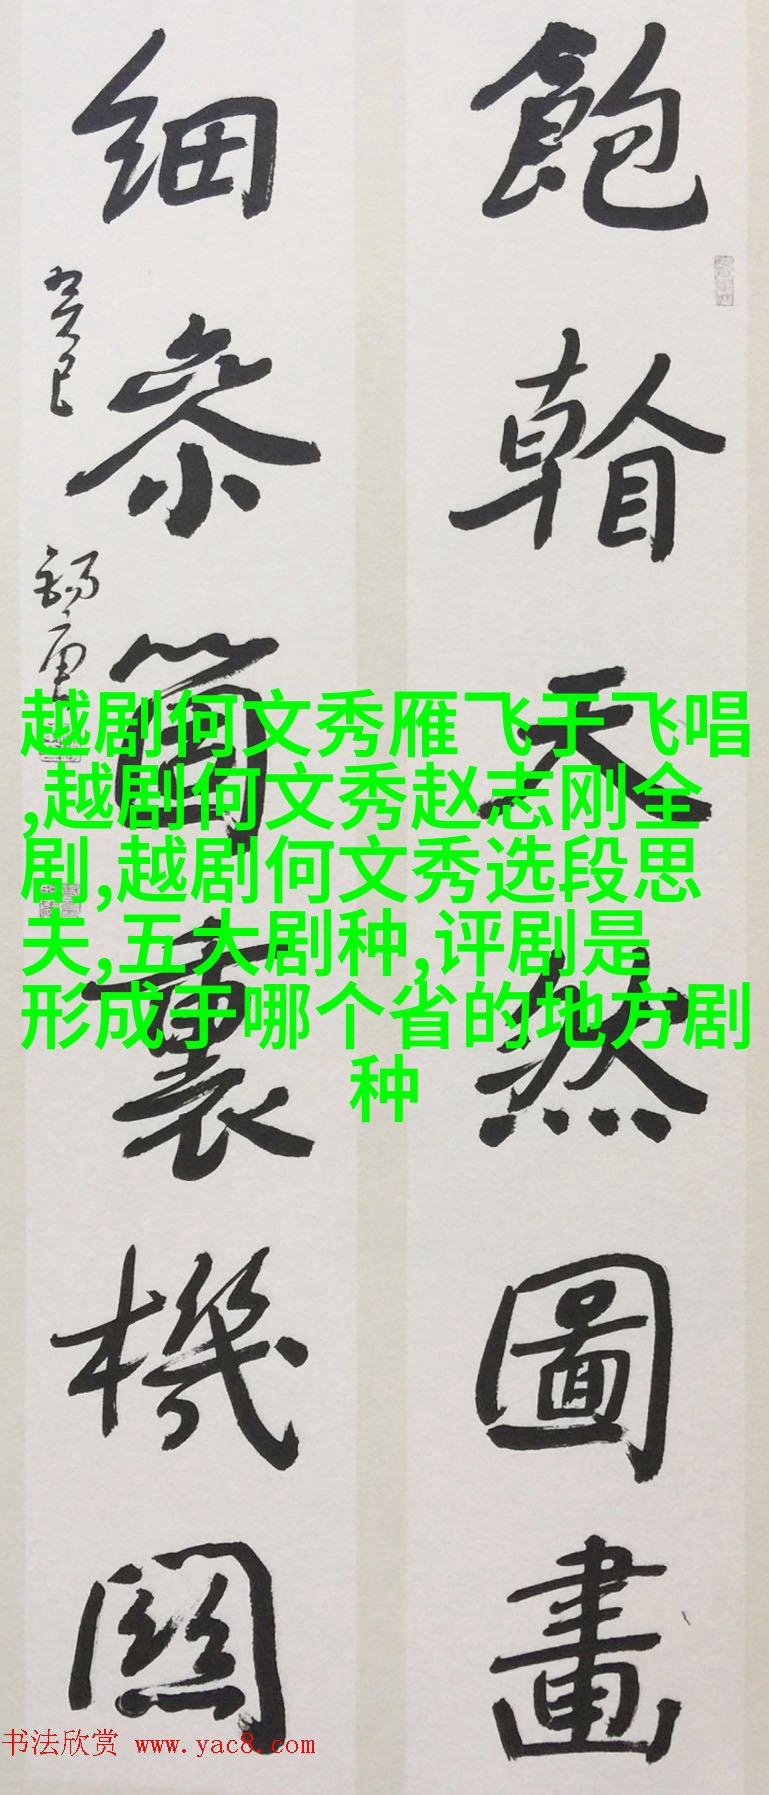 飽看天然圖畫
細参箇裏機関
癸巳
越剧何文秀雁飞于飞唱
,越剧何文秀赵志刚全
剧,越剧何文秀选段思
夫,五大剧种,评剧是
形成于哪个省的地方剧
种
书法欣赏 www.yac8.com